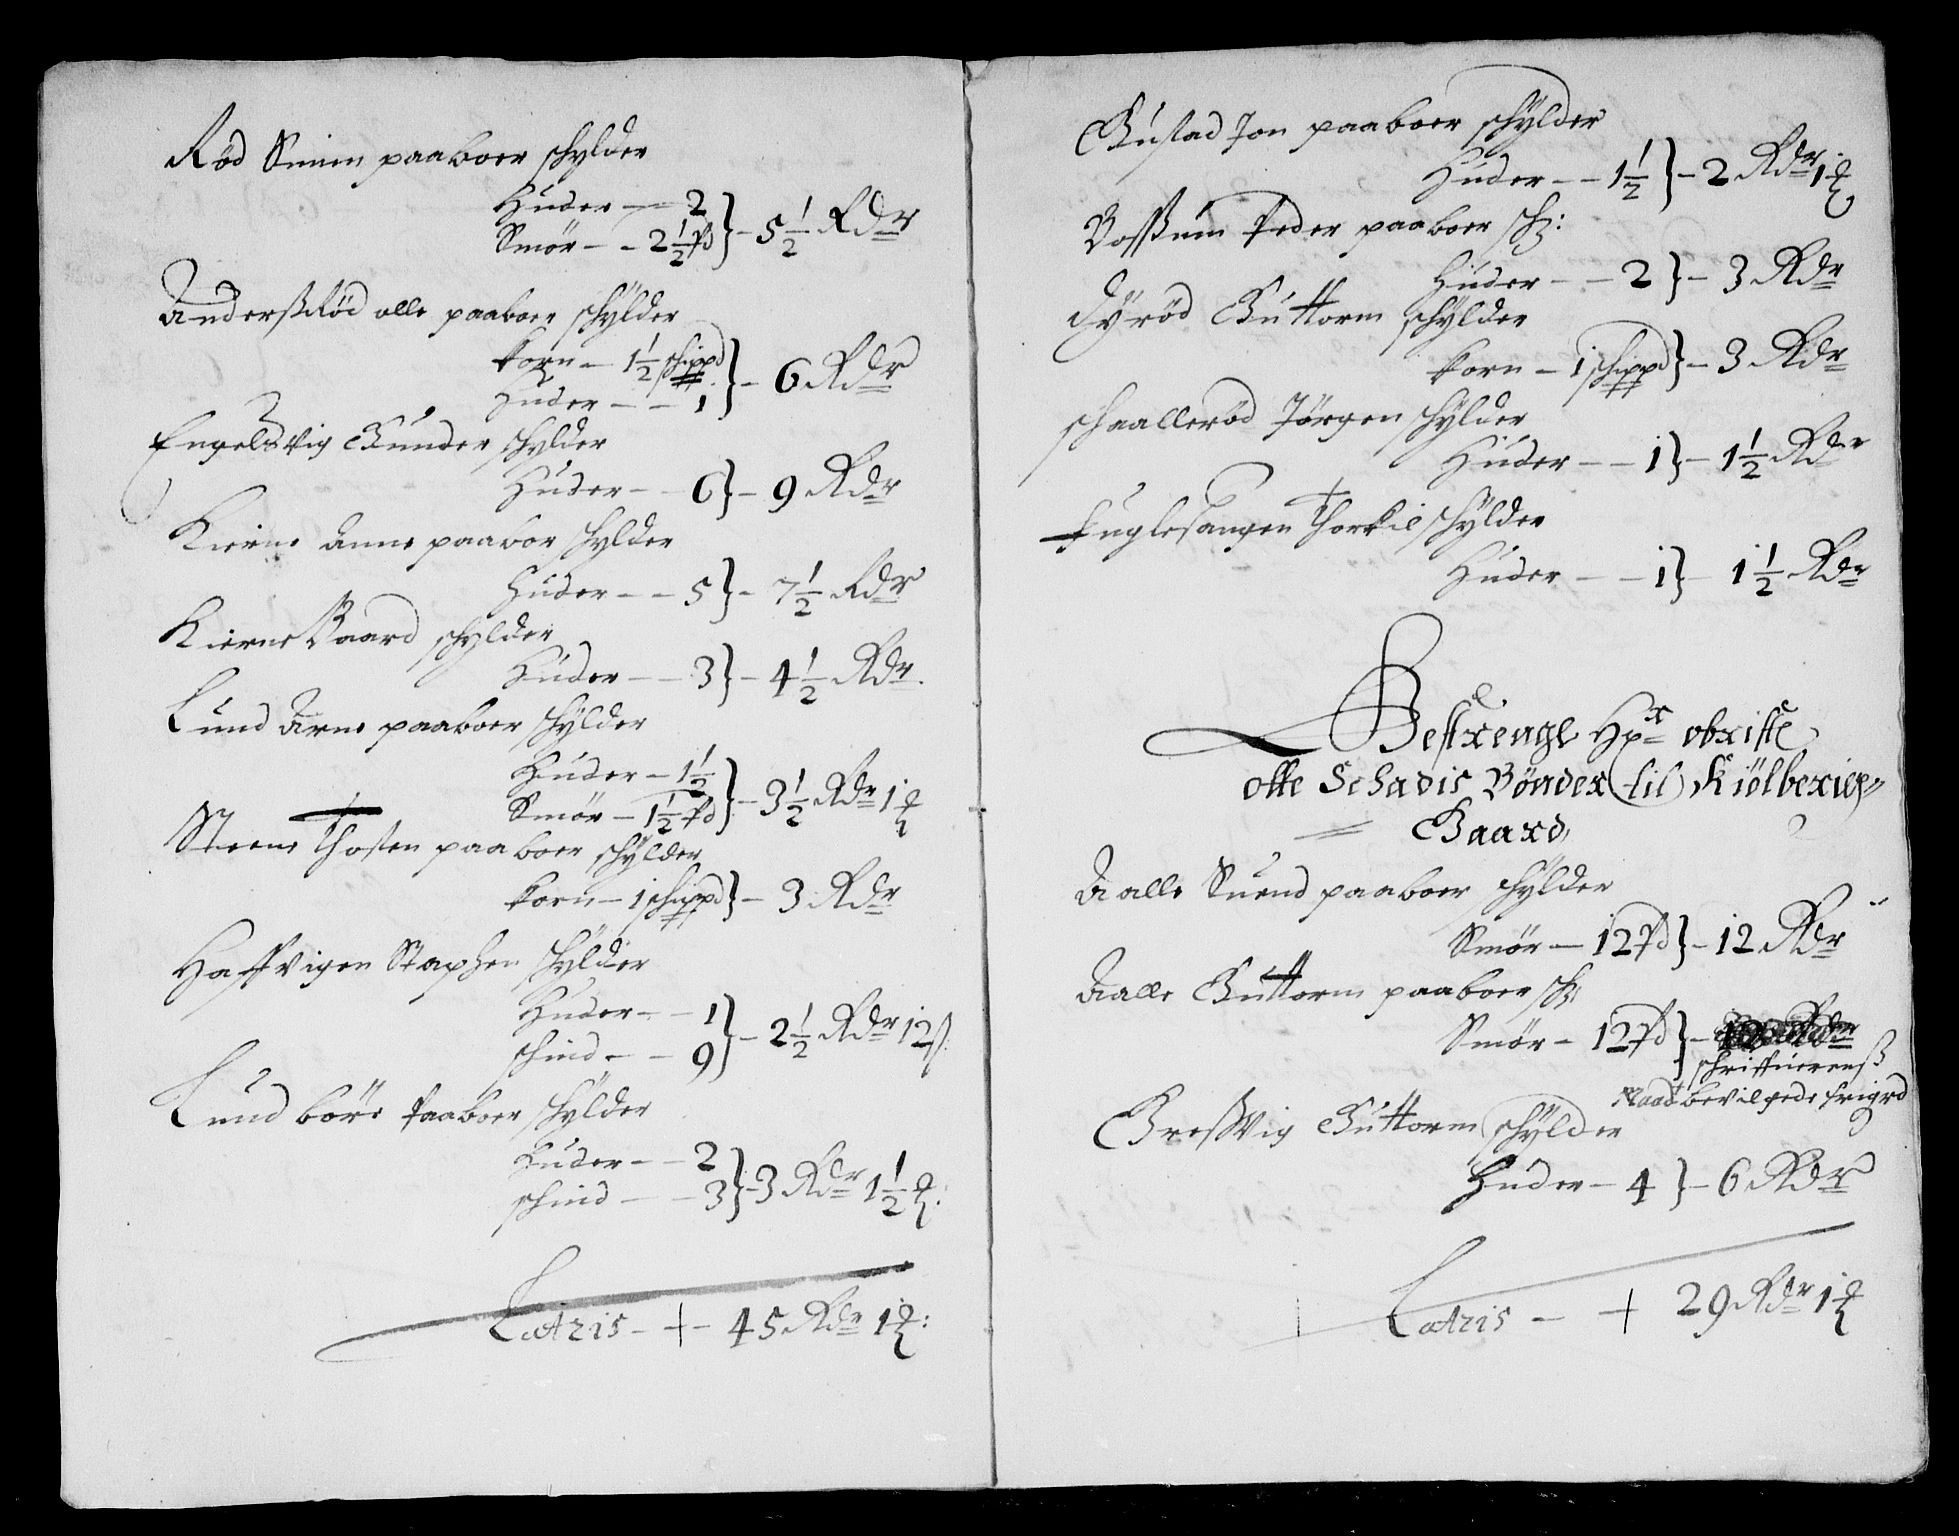 Rød Simen paaboer schylder
Huder — 2
Smør — 2 1/2 pd } — 5 1/2 Rdr
Anderßrød olle paaboer schylder
korn — 1 1/2 schippd
Huder — 1 } — 6 Rdr
Engelsvig Gunder schylder
Huder — 6 } — 9 Rdr
Kierne Anne paabor schylder
Huder — 5 } — 7 1/2 Rdr
Kierne Baard schylder
Huder — 3 } — 4 1/2 Rdr
Lund Arne paaboer schylder
Huder — 1 1/2
Smør — 1 1/2 pd } — 3 1/2 Rdr 1
Steene Thosten paaboer schylder
korn — 1 schippd } — 3 Rdr
Haffvigen Staphen schylder
Huder — 1
schind — 9 } — 2 1/2 Rdr 12 ß
Lund børe paaboer schylder
Huder — 2
schind — 3 } — 3 Rdr 1 1/2
Latris — + — 45 Rdr 1
Gustad Jon paaboer schylder
Huder — 1 1/2 } — 2 Rdr 1
Boßum Peder paaboer sch:
Huder — 2 } — 3 Rdr
Dyrød Guttorm schylder
korn — 1 schippd } — 3 Rdr
schaallerød Jørgen schylder
Huder — 1 } — 1 1/2 Rdr
fuglesangen Thorkil schylder
Huder — 1 } — 1 1/2 Rdr
Bestrenge Hr obriste
otte Schadis Bønder til Kiølberigs
Gaard
Aalle Suend paaboer schylder
Smør — 12 pd } — 12 Rdr
Aalle Guttorm paaboer sch:
Smør — 12 pd } —
bevilgede
Greßvig Guttorm schylder
Huder — 4 } — 6 Rdr
Latris — + 29 Rdr 1